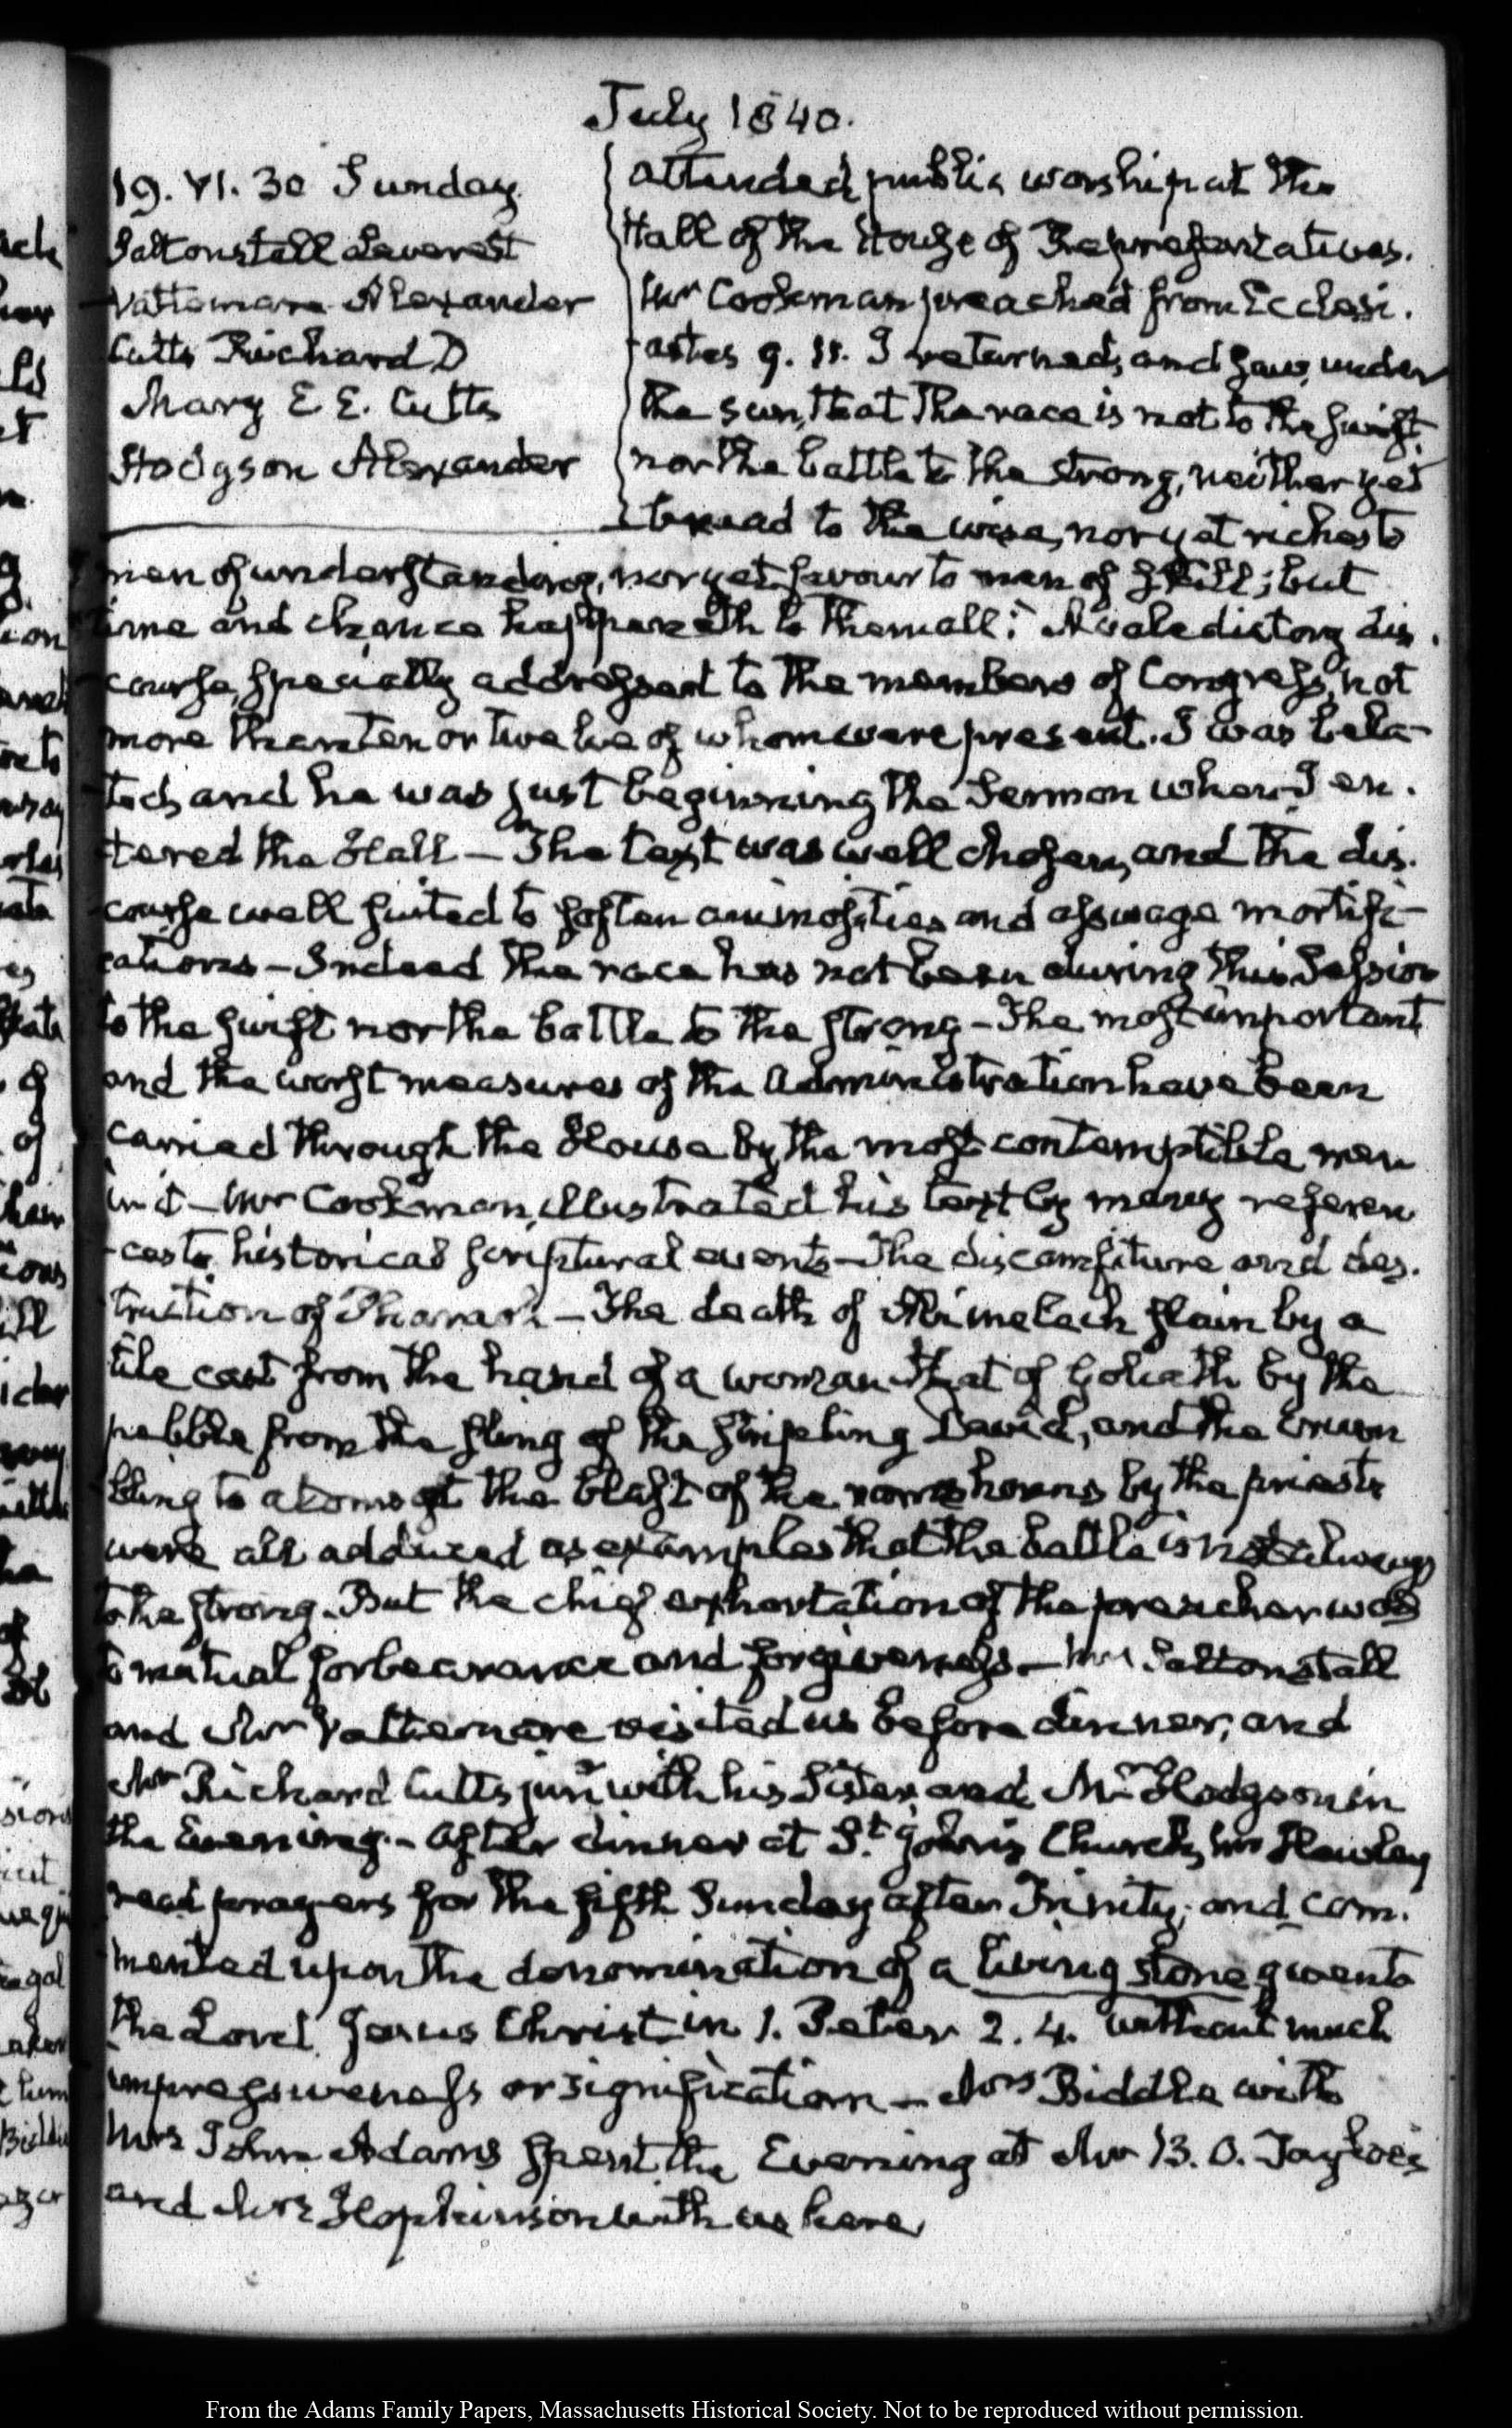 July 1840.
19. VI. 30 Sunday.
Saltonstall Leverett
Vattemare Alexander
Cutts Richard D
Mary E E. Cutts
Hodgson Alexander
attended public worship at the
Hall of the House of Representatives.
Mr Cookman preached from Ecclesi.
astes 9. 11. I returned, and saw, under
the sun, that the race is not to the swift
nor the battle to the strong, neither yet
bread to the wise, nor yet riches to
men of understanding, nor yet favour to men of skill; but
time and chance happeneth to them all: A valedictory dis.
course, specially addressed to the members of Congress, not
more than ten or twelve of whom were present. I was bela-
ted, and he was just beginning the Sermon when I en.
tered the Hall — The text was well chosen, and the dis.
course well suited to soften animosities and asswage mortifi-
cations — Indeed the race has not been during this Session
to the swift nor the battle to the strong — The most important
and the worst measures of the Administration have been
carried through the House by the most contemptible men
in it — Mr Cookman, illustrated his text by many referen
ces to historical scriptural events — The discomfiture and des.
truction of Pharaoh — The death of Abimelech slain by a
tile cast from the hand of a woman that of Goliath by the
pebble from the sling of the stripling David, and the crum
bling to atoms at the blast of the rams horns by the priests
were all adduced as examples that the battle is not always
to the strong. But the chief exhortation of the preacher was
to mutual forbearance and forgiveness — Mr Saltonstall
and Mr Vattemare visited us before dinner, and
Mr Richard Cutts junr with his Sister and Mr Hodgson in
the Evening. — After dinner at St. John's Church, Mr Hawley
read prayers for the fifth Sunday after Trinity, and com.
mented upon the denomination of a living stone given to
the Lord Jesus Christ in 1. Peter 2. 4. without much
impressiveness or signification — Mrs Biddle with
Mrs John Adams spent the Evening at Mr B. O. Tayloe's
and Mrs Hopkinson with us here
From the Adams Family Papers, Massachusetts Historical Society. Not to be reproduced without permission.